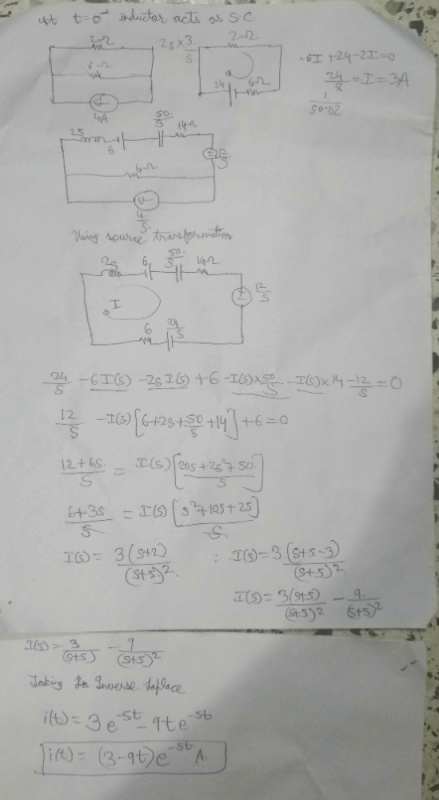 At t=0⁻ inductor acts as S.C
2Ω
6Ω
4A
2s×3/s
2Ω
24
6Ω
-6I+24-2I=0
24/8 = I = 3A
2s
6
50/s
14Ω
12/s
6Ω
4/s
Using source transformation
2s
6
50/s
14Ω
12/s
I
6
24/s
24/s - 6I(s) - 2sI(s) + 6 - I(s)×50/s - I(s)×14 - 12/s = 0
12/s - I(s)[6+2s+50/s+14] + 6 = 0
12+6s/s = I(s)[20s+2s²+50/s]
6+3s/s = I(s)[s²+10s+25/s]
I(s) = 3(s+2)/(s+5)² : I(s) = 3(s+5-3)/(s+5)²
I(s) = 3(s+5)/(s+5)² - 9/(s+5)²
I(s) = 3/(s+5) - 9/(s+5)²
Taking Inverse Laplace
i(t) = 3e^-5t - 9te^-5t
i(t) = (3-9t)e^-5t A